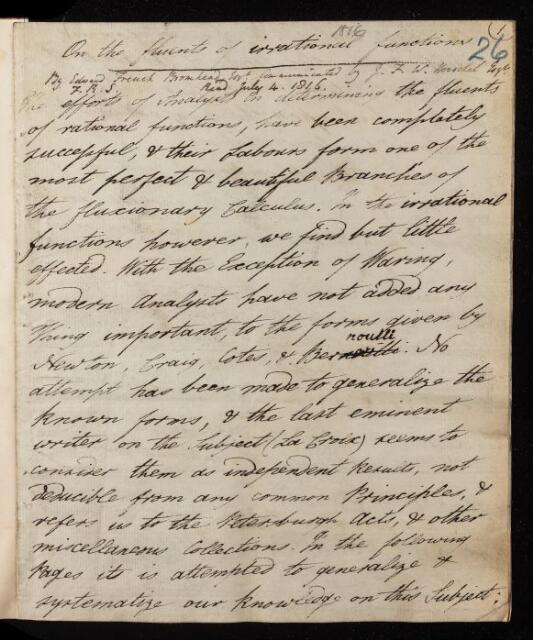 1816
On the fluents of irrational functions 26
By Edward Ffrench Bromhead Esqr Communicated by J. F. W. Herschel Esqr
F. R. S. Read July 4. 1816.
The efforts of Analysts in determining the fluents
of rational functions, have been completely
successful, & their Labours form one of the
most perfect & beautiful Branches of
the fluxionary Calculus. In the irrational
functions however, we find but little
effected. With the Exception of Waring,
modern Analysts have not added any
Thing important, to the forms given by
noulli
Newton, Craig, Cotes, & Bernoulli. No
attempt has been made to generalize the
known forms, & the last eminent
writer on the Subject (La Croix) seems to
consider them as independent Results, not
deducible from any common Principles, &
refers us to the Petersburgh Acts, & other
miscellaneous Collections. In the following
Pages it is attempted to generalize &
systematize our knowledge on this Subject;